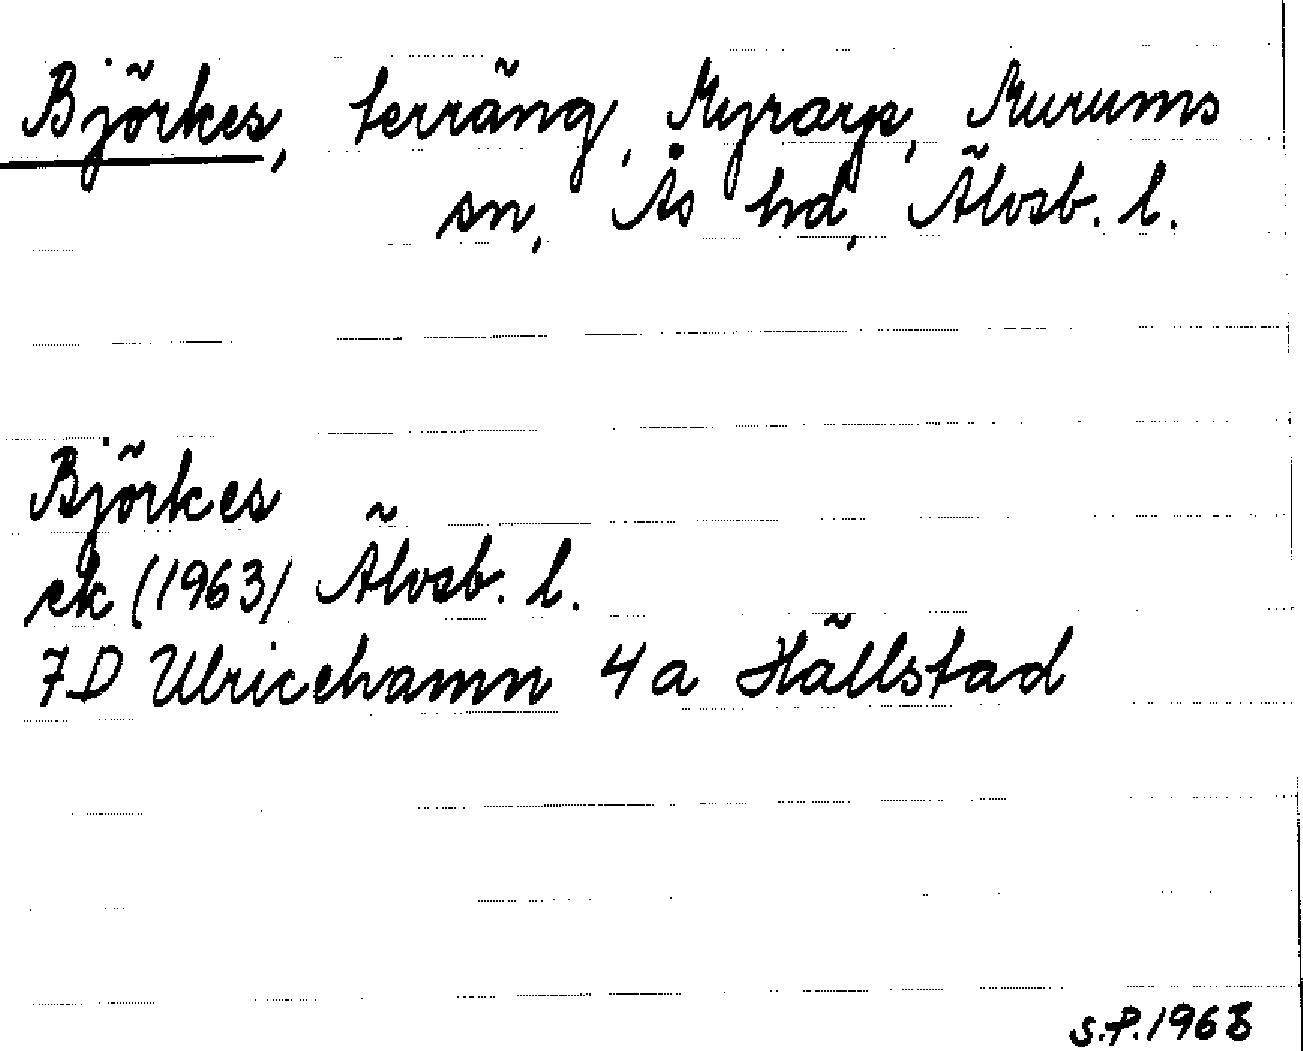 Björkes, terräng, Myrarp, Murums
sn, Ås hd, Älvsb. l.
Björkes
ek (1963) Älvsb. l.
7D Ulricehamn 4a Hällstad
S.P. 1968